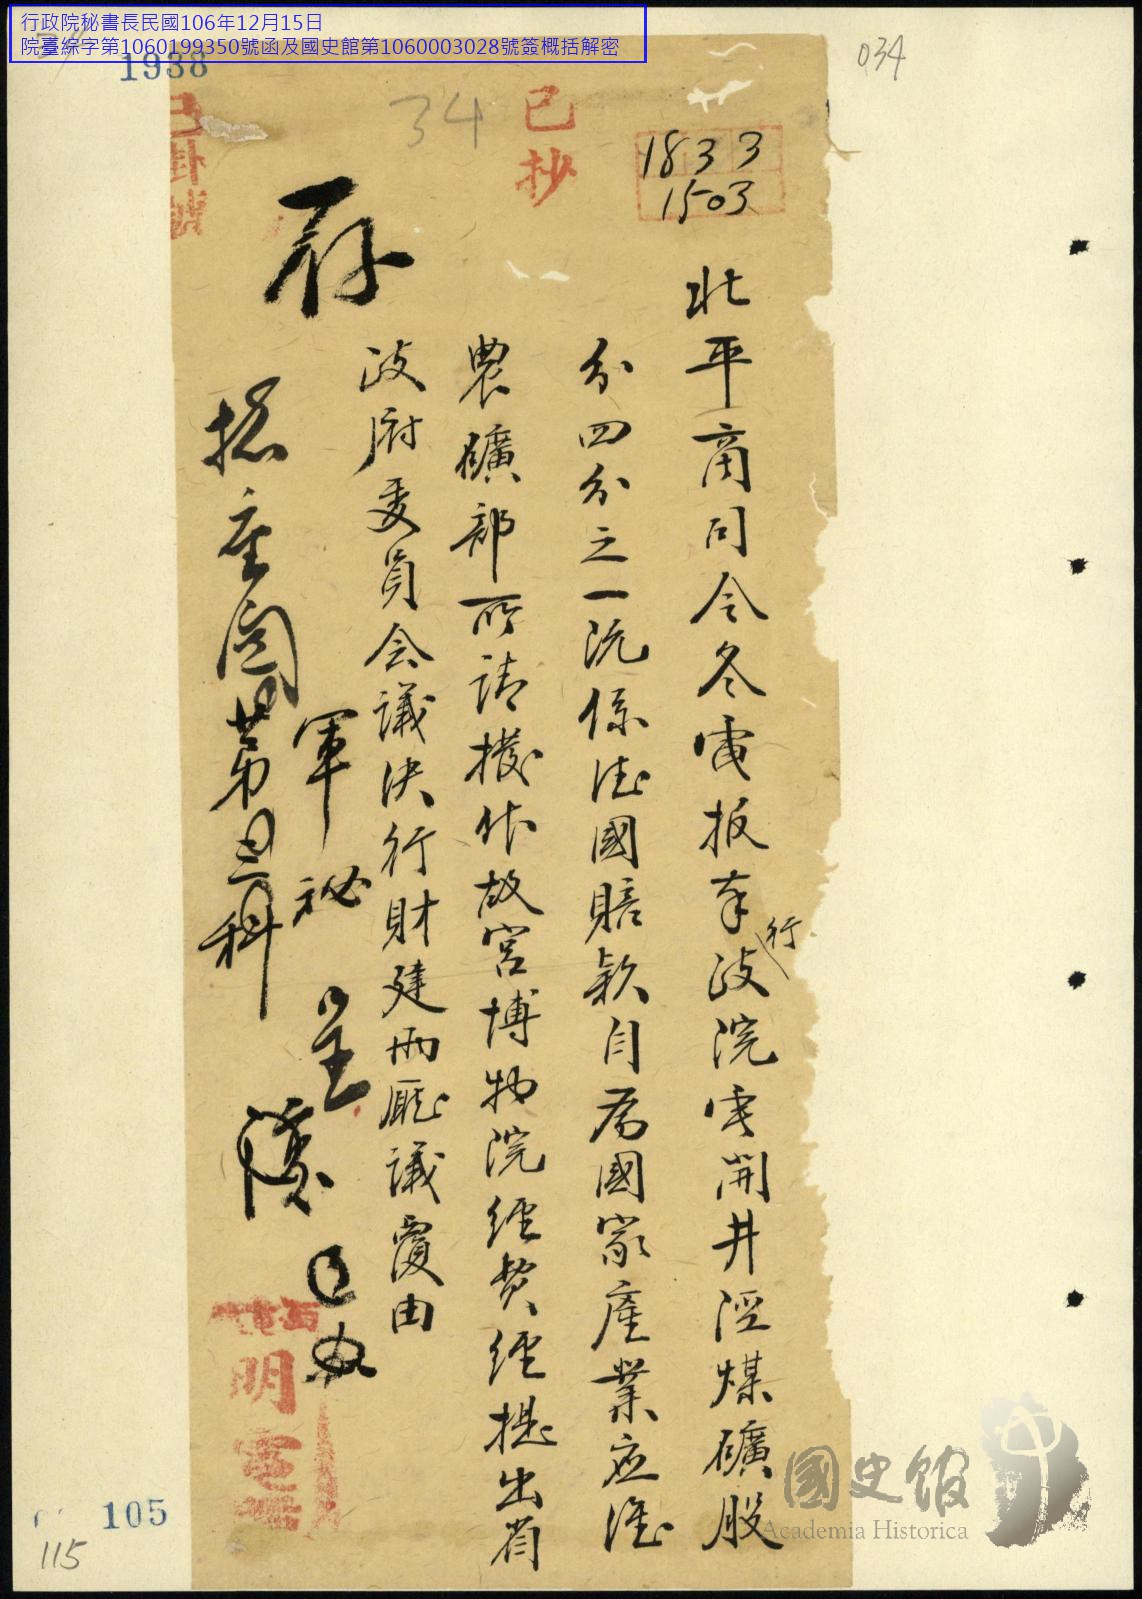 行政院秘書長民國106年12月15日
院臺綜字第1060199350號函及國史館第1060003028號簽概括解密
1938
034
34
已抄
已掛號
1833
1503
北平商司令冬電报奉行政院電開井陘煤礦股
分四分之一既係德國賠款自為國家產業应准
農礦部所請撥作故宮博物院經費經提出省
政府委員会議決行財建兩廳議覆由
存
軍秘呈
總座閱
第三科
明電
國史館
Academia Historica
105
115